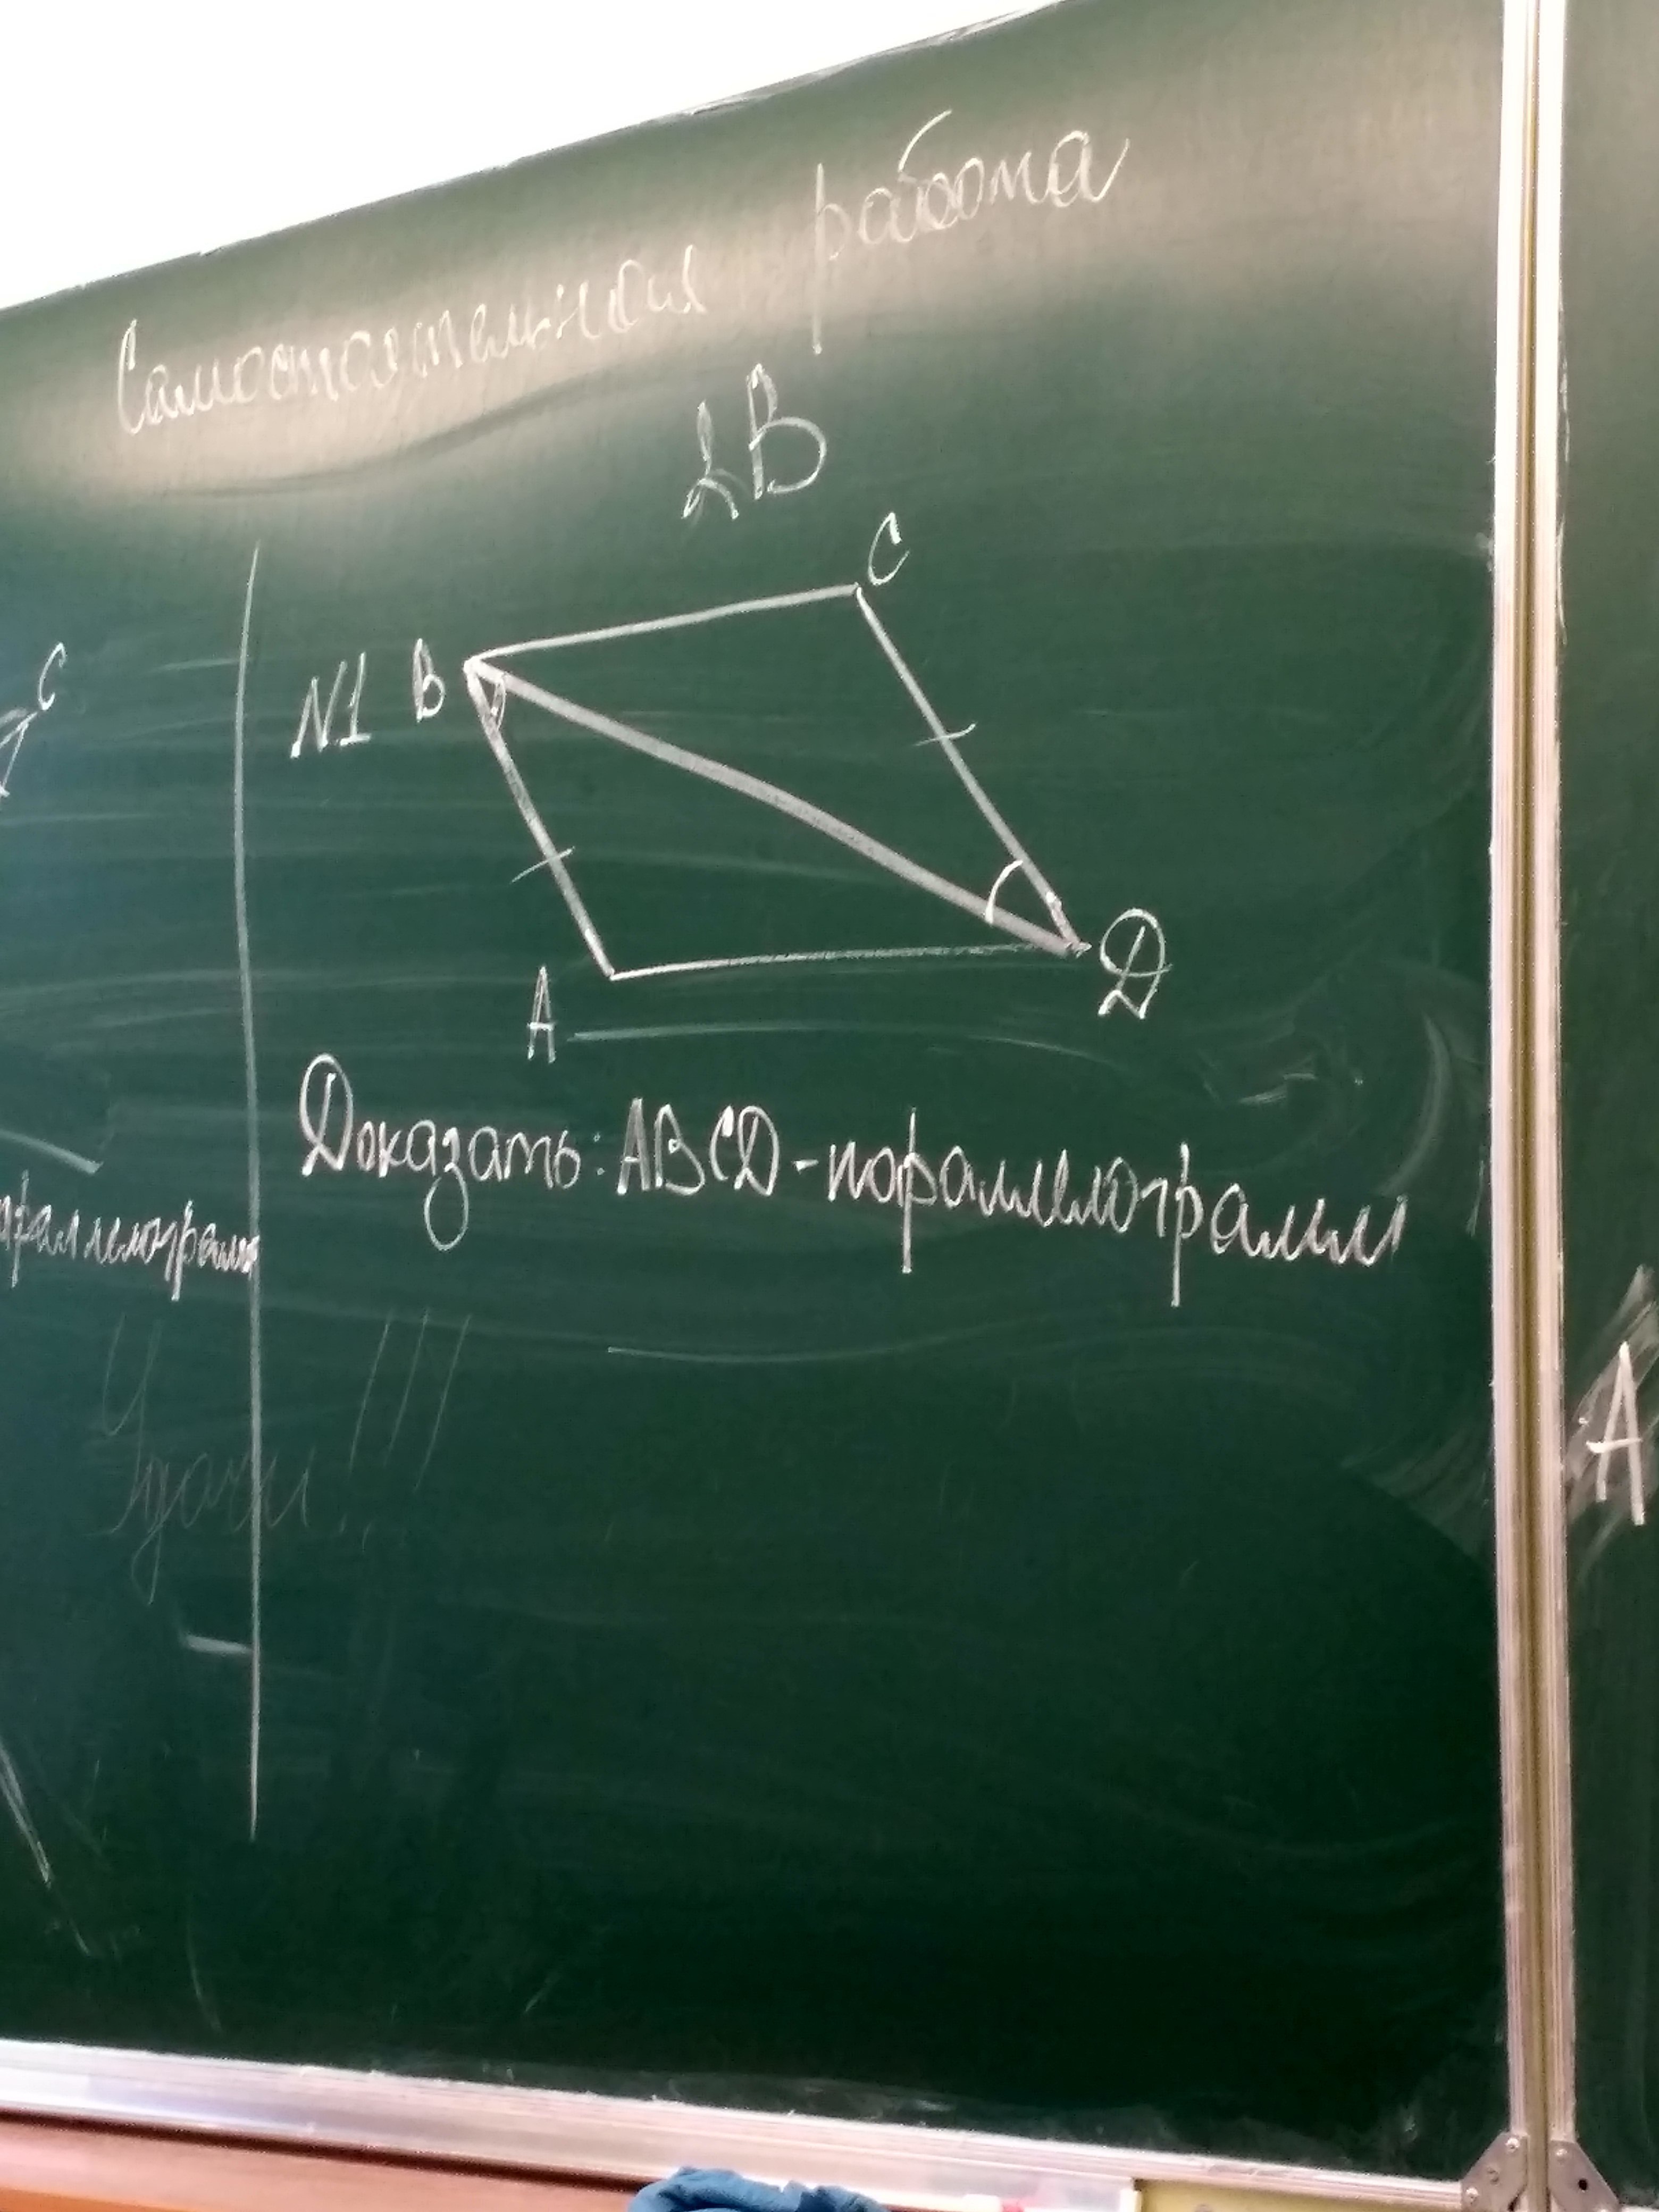 Самостоятельная работа
2В
C
C
N1 B
A
D
Доказать: ABCD - пораллелограмм
Удачи!!!
A